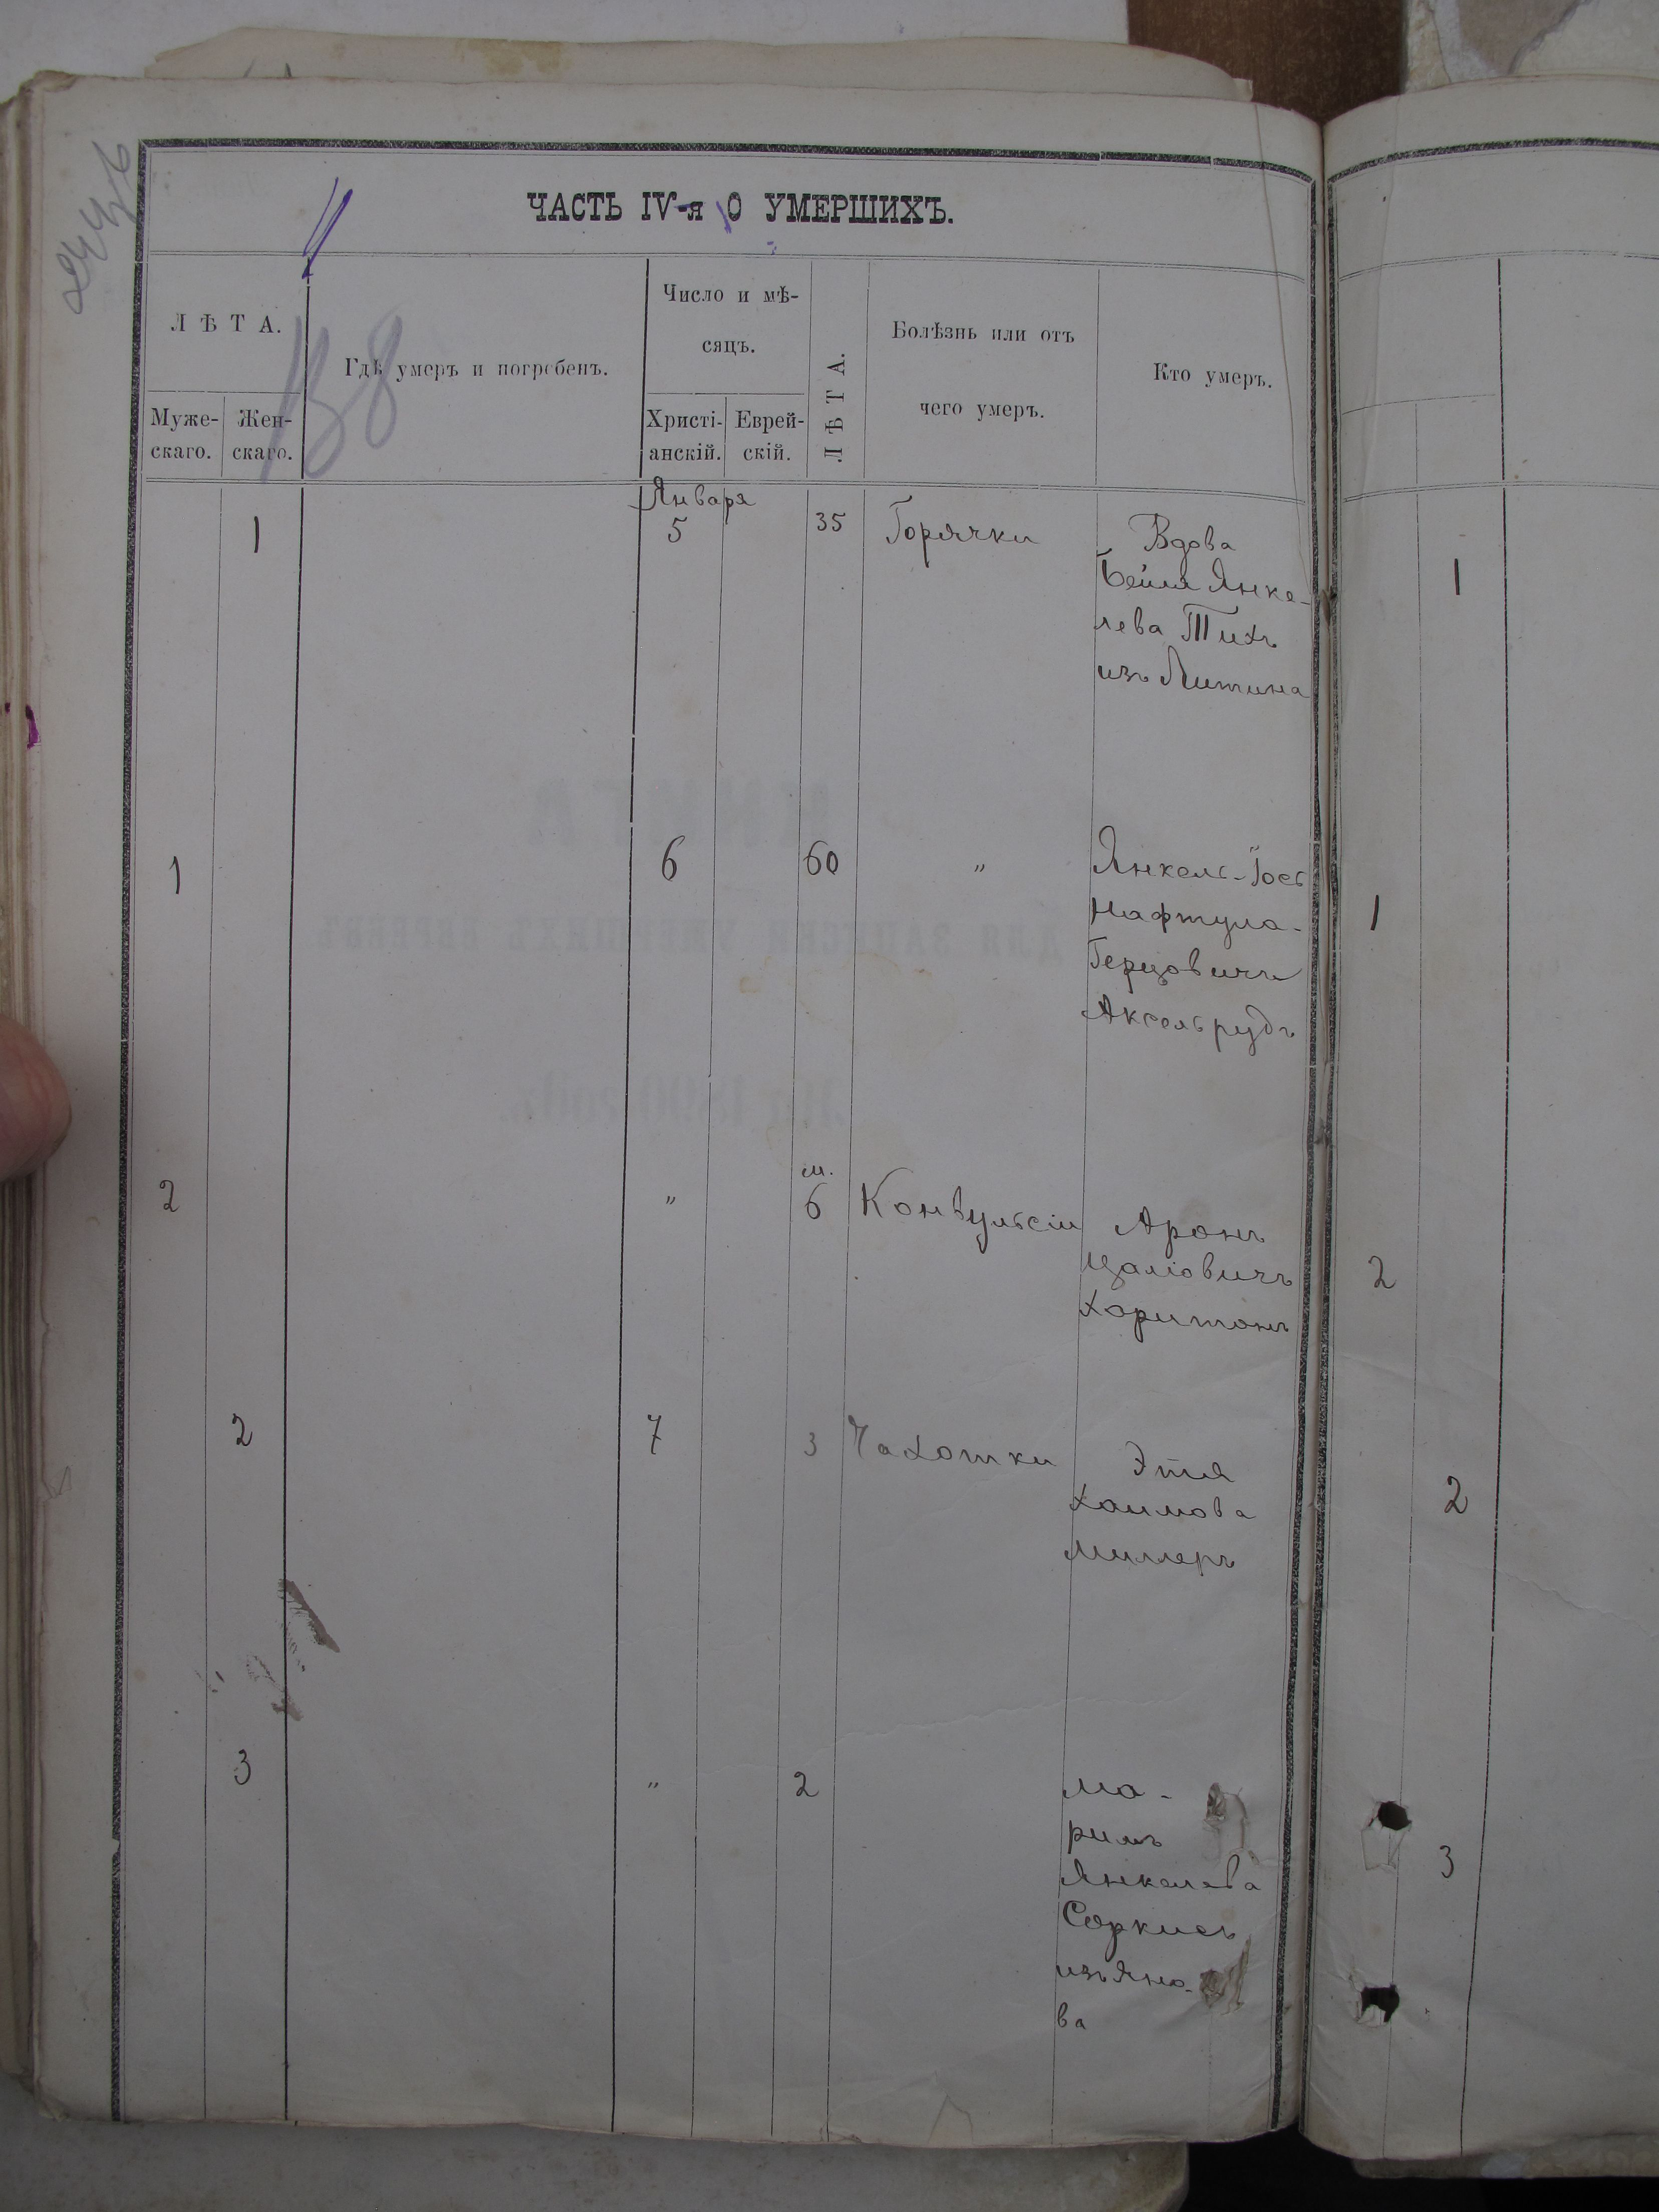 ЧАСТЬ IV-я О УМЕРШИХЪ.
ЛѢТА.
Муже-
скаго.
Жен-
скаго.
Гдѣ умеръ и погребенъ.
Число и мѣ-
сяцъ.
Христі-
анскій.
Еврей-
скій.
ЛѢТА.
Болѣзнь или отъ
чего умеръ.
Кто умеръ.
138
Января
1 5 35 Горячки Вдова
Бейля Янке-
лева Тихъ
изъ Литина
1
1 6 60 " Янкель-Іось
Нафтула-
Герцовичъ
Аксельрудъ
1
м.
2 " 6 Конвульсіи Аронъ
Цаліовичъ
Харитонъ
2
2 7 3 Чахотки Этля
Хаимова
Миллеръ
2
3 " 2 Ма-
римъ
Янкелева
Соркисъ
изъ Яно-
ва
3